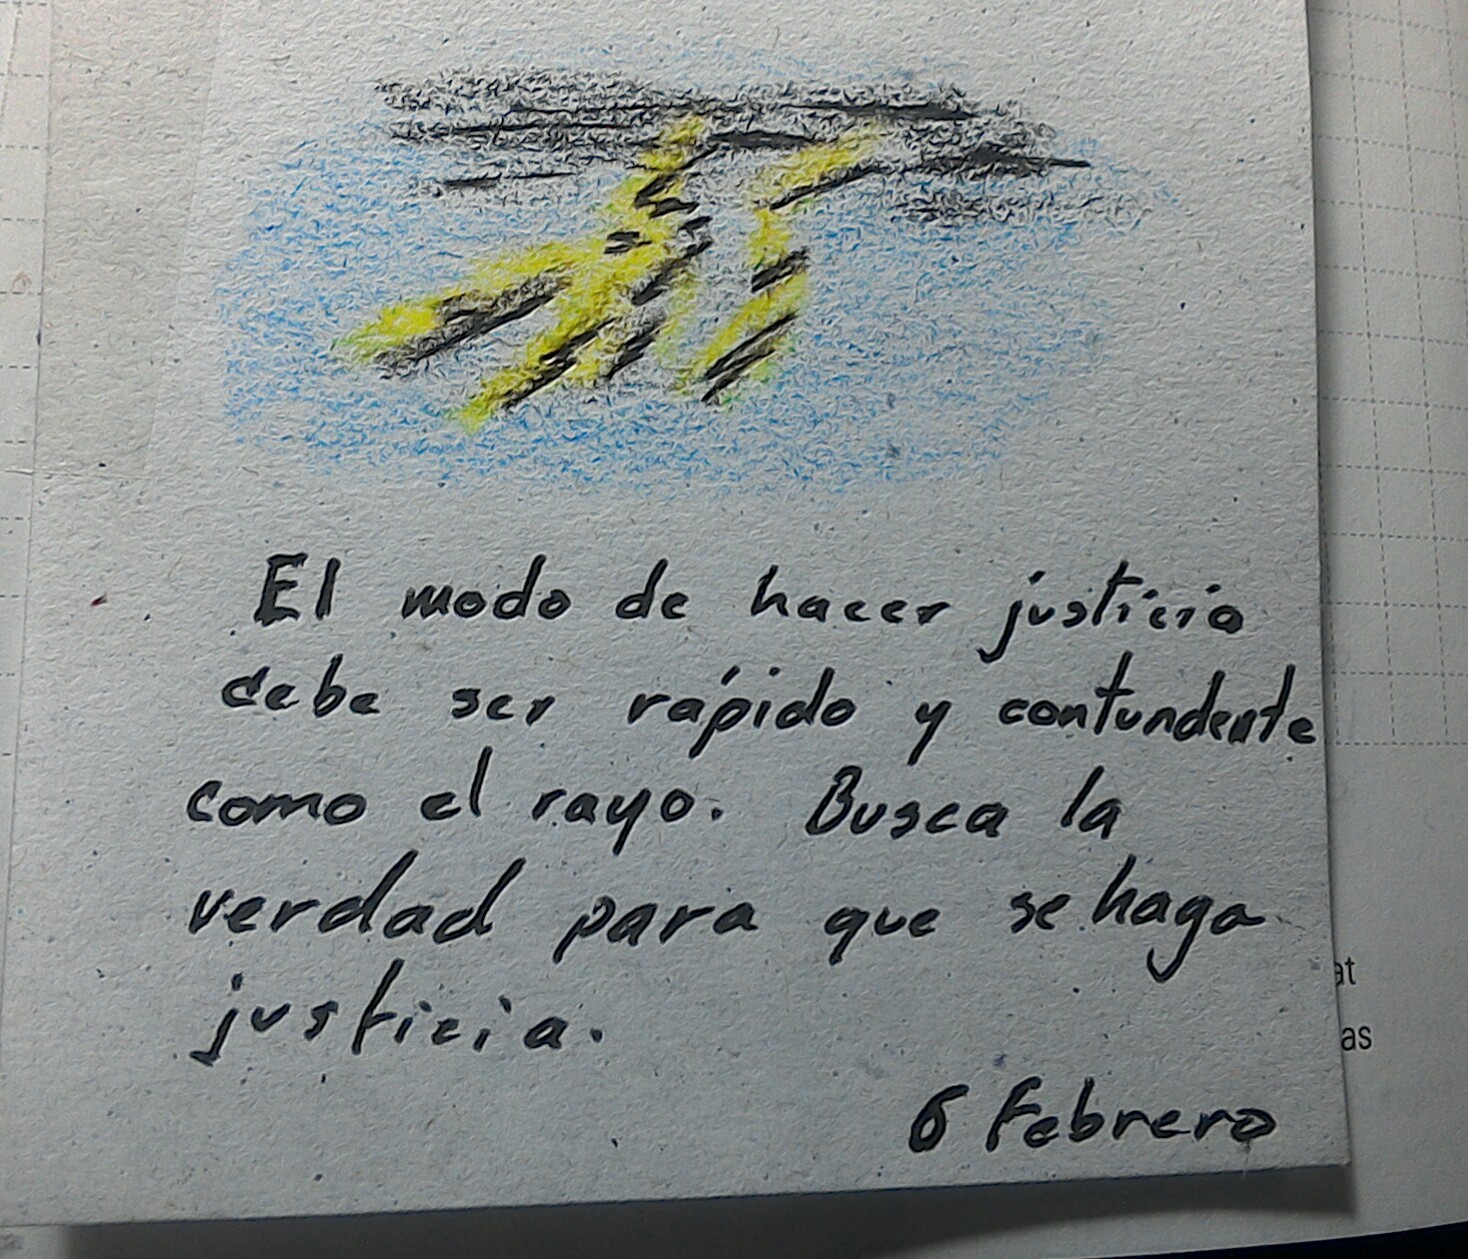 El modo de hacer justicia
debe ser rápido y contundente
como el rayo. Busca la
verdad para que se haga
justicia.
6 Febrero
at
as